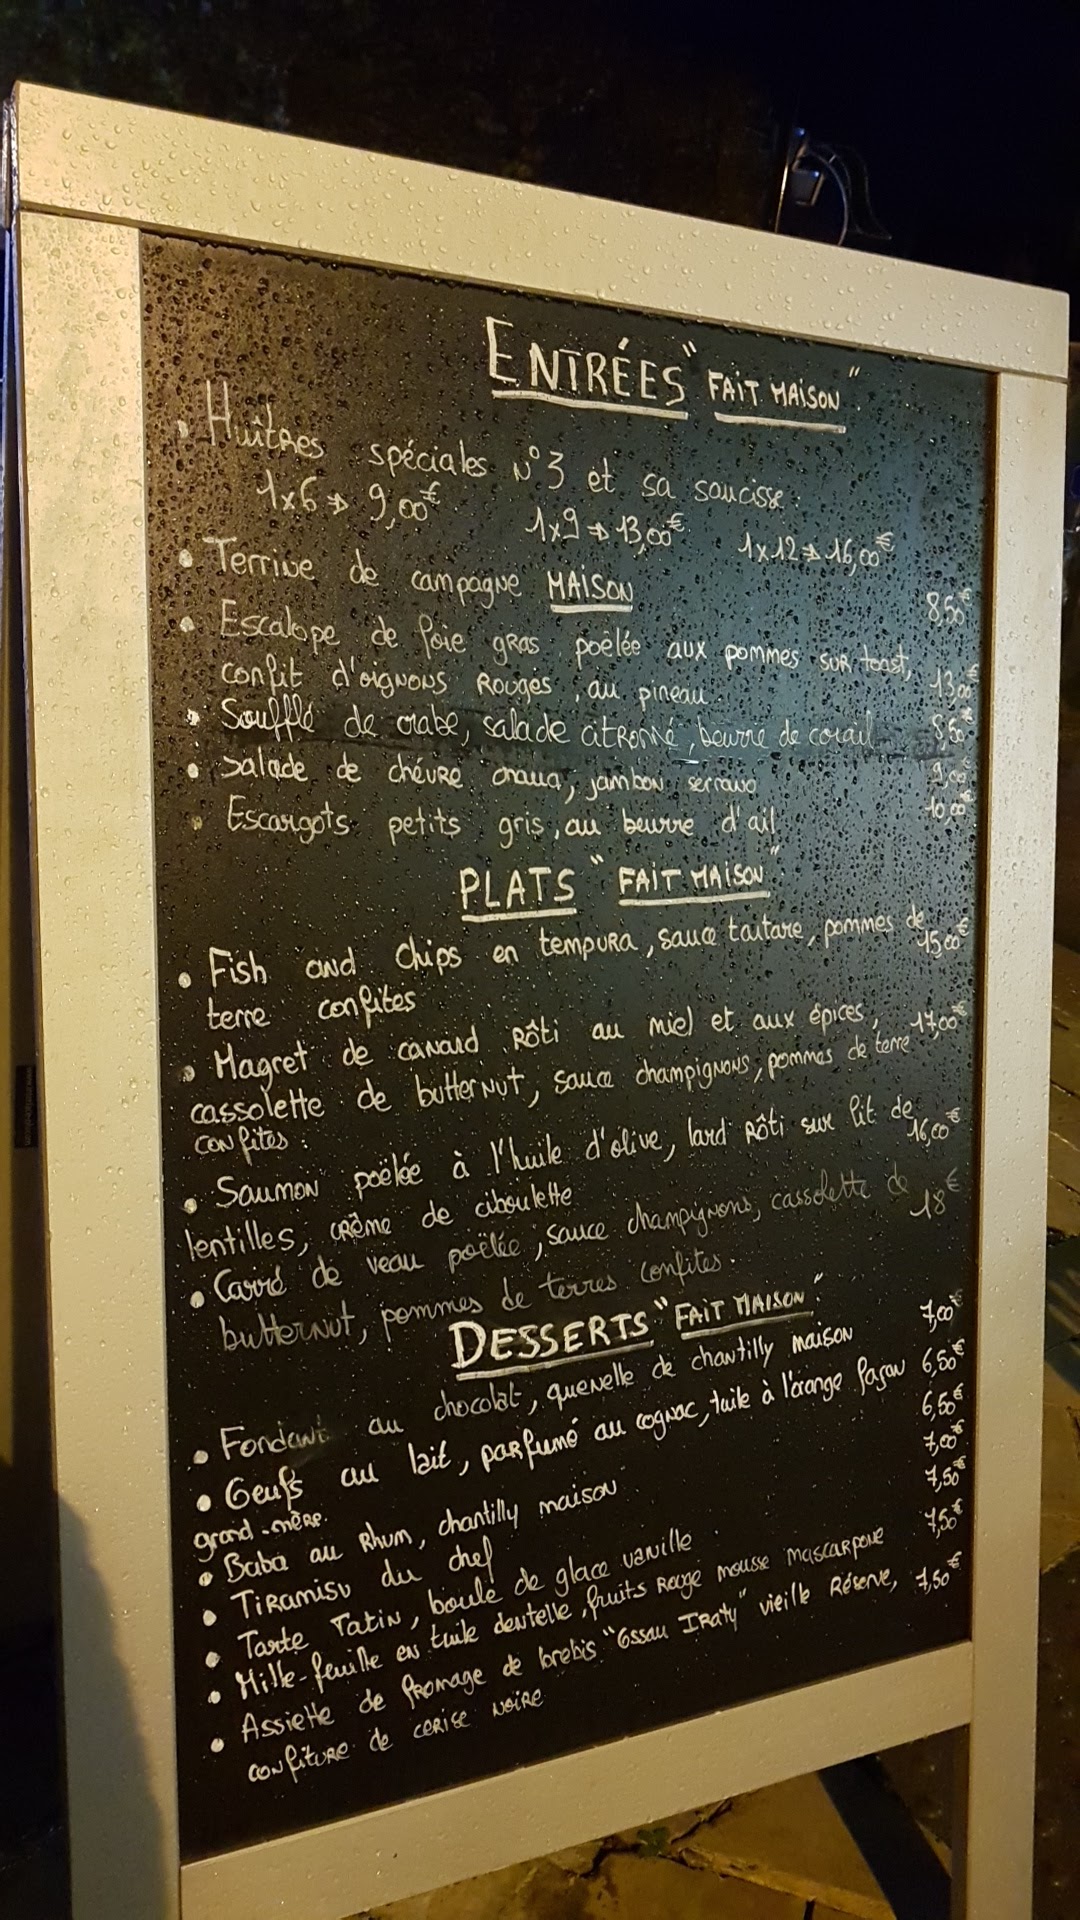 ENTRÉES "FAIT MAISON".
• Huîtres spéciales N°3 et sa saucisse :
1x6 ⇒ 9,00€ 1x9 ⇒ 13,00€ 1x12 ⇒ 16,00€
• Terrine de campagne MAISON 8,50€
• Escalope de foie gras poëlée aux pommes sur toast,
confit d'oignons Rouges, au pineau. 13,00€
• Soufflé de crabe, salade citronné, beurre de corail 8,50€
• Salade de chévre chaud, jambon serrano 9,00€
• Escargots petits gris, au beurre d'ail 10,00€
PLATS "FAIT MAISON"
• Fish and Chips en tempura, sauce tartare, pommes de 15,00€
terre confites
• Magret de canard Rôti au miel et aux épices, 17,00€
cassolette de butternut, sauce champignons, pommes de terre
confites.
• Saumon poëlée à l'huile d'olive, lard Rôti sur lit de 16,00€
lentilles, crême de ciboulette
• Carré de veau poëlée, sauce champignons, cassolette de 18€
butternut, pommes de terres confites.
DESSERTS "FAIT MAISON".
• Fondant au chocolat, quenelle de chantilly maison 7,00€
• Oeufs au lait, parfumé au cognac, tuile à l'orange façon 6,50€
grand-mère.
• Baba au Rhum, chantilly maison 6,50€
• Tiramisu du chef 7,00€
• Tarte Tatin, boule de glace vanille 7,50€
• Mille-feuille en tuile dentelle, fruits Rouge mousse mascarpone 7,50€
• Assiette de fromage de brebis "Ossau Iraty" vieille Réserve, 7,50€
confiture de cerise noire